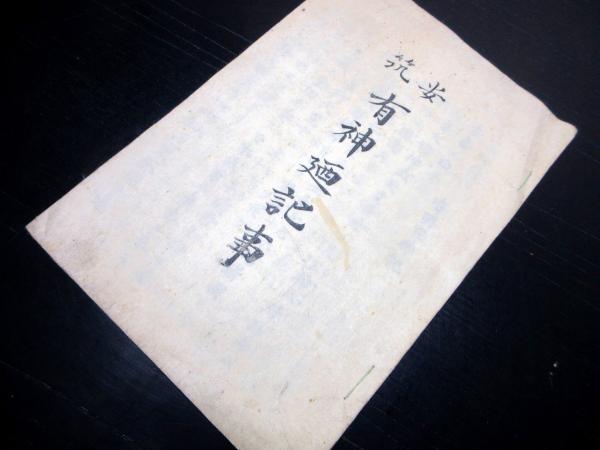 安筑
有神廼記事